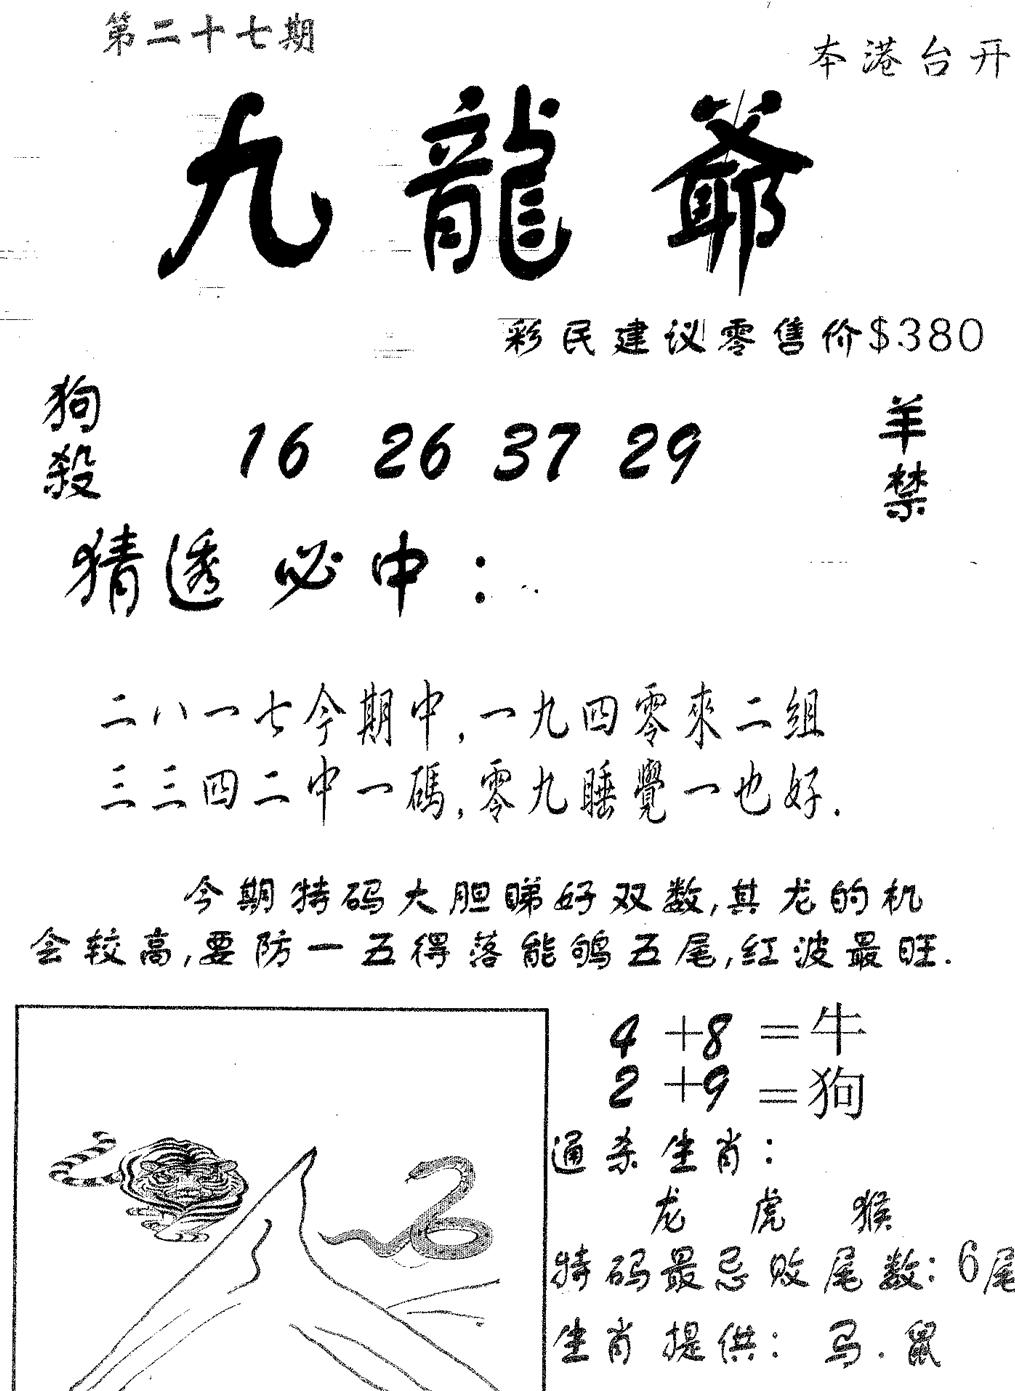 第二十七期
本港台开
九龍爺
彩民建议零售价$380
狗殺
16 26 37 29
羊禁
猜透必中：
二八一七今期中,一九四零來二组
三三四二中一碼,零九睡覺一也好.
今期特码大胆睇好双数,其龙的机
会较高,要防一五得落能鸲五尾,红波最旺.
4+8=牛
2+9=狗
通杀生肖：
龙 虎 猴
特码最忌败尾数：6尾
生肖提供：马.鼠